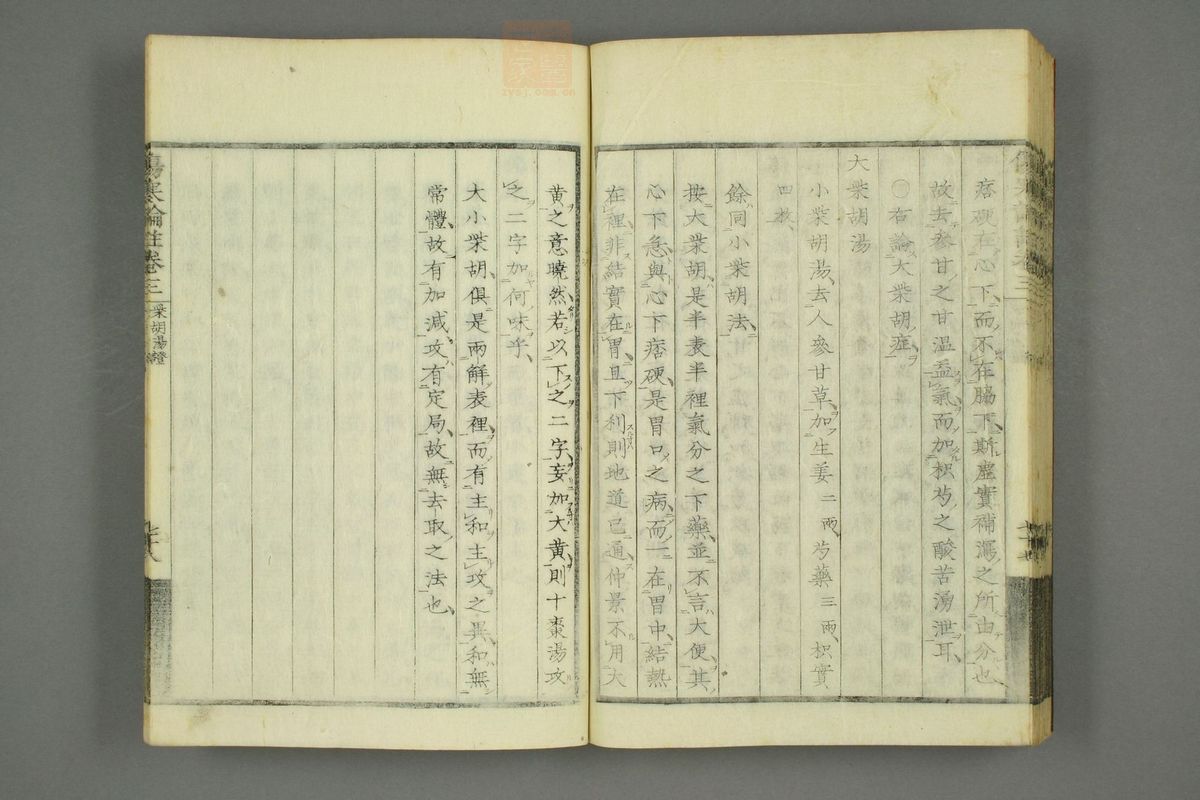 痞硬在心下而不在脇下斯虛實補瀉之所由分也
故去參甘之甘溫益氣而加枳芍之酸苦湧泄耳
○右論大柴胡症
大柴胡湯
小柴胡湯去人參甘草加生姜二兩芍藥三兩枳實
四枚
餘同小柴胡法
按大柴胡是半表半裡氣分之下藥並不言大便其
心下急與心下痞硬是胃口之病而一在胃中結熱
在裡非結實在胃且下利則地道已通仲景不用大
黄之意曉然若以下之二字妄加大黄則十棗湯攻
之二字如何味乎
大小柴胡俱是兩解表裡而有主和主攻之異和無
常體故有加減攻有定局故無去取之法也
傷寒論註卷三
柴胡湯證
zysj.com.cn